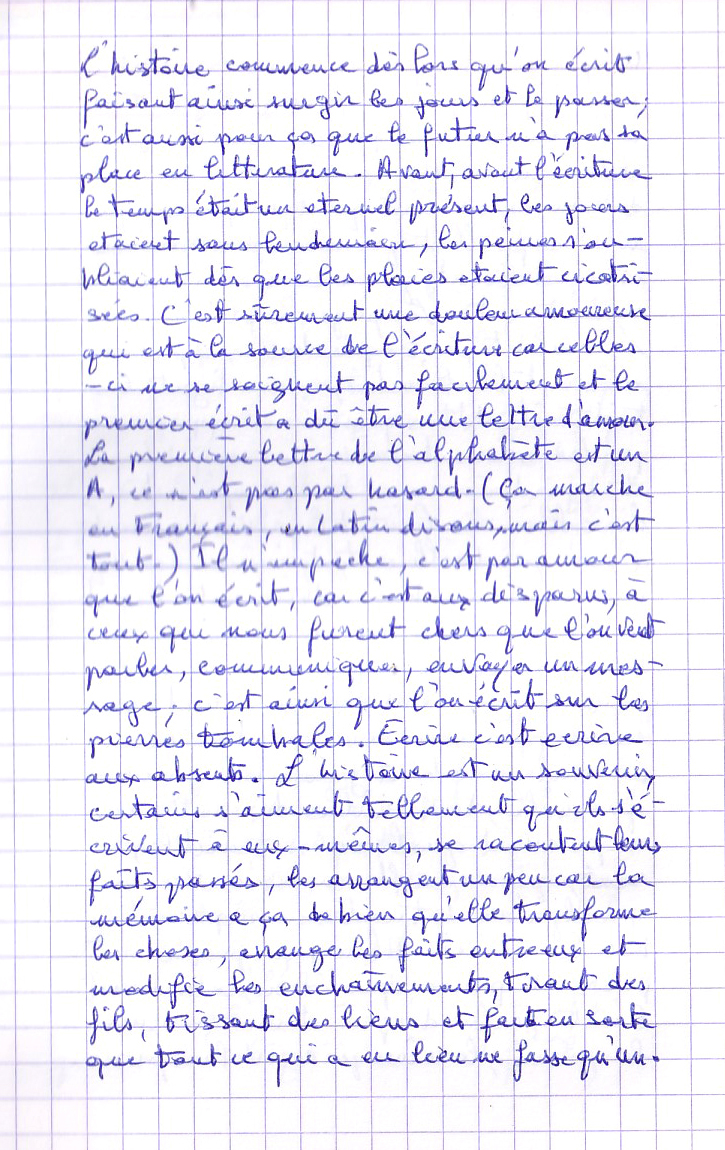 L'histoire commence dès lors qu'on écrit
faisant ainsi surgir les jours et le passer,
c'est aussi pour ça que le futur n'a pas sa
place en litterature. Avant, avant l'écriture
le temps était un eternel présent, les jours
etaient sans lendemain, les peines s'ou-
bliaient dès que les plaies etaient cicatri-
sées. C'est sûrement une douleur amoureuse
qui est à la source de l'écriture car celles
-ci ne se soignent pas facilement et le
premier écrit a dû être une lettre d'amour.
La première lettre de l'alphabète est un
A, ce n'est pas par hasard. (Ça marche
en Français, en latin disons, mais c'est
tout.) Il n'empeche, c'est par amour
que l'on écrit, car c'est aux disparus, à
ceux qui nous furent chers que l'on veut
parler, communiquer, envoyer un mes-
sage, c'est ainsi que l'on écrit sur les
pierres tombales. Ecrire c'est ecrire
aux absents. L'histoire est un souvenir,
certains s'aiment tellement qu'ils s'é-
crivent à eux-mêmes, se racontent leurs
faits passés, les arrangent un peu car la
mémoire a ça de bien qu'elle transforme
les choses, arrange les faits entre eux et
modifie les enchaînements, tirant des
fils, tissant des liens et fait en sorte
que tout ce qui a eu lieu ne fasse qu'un.